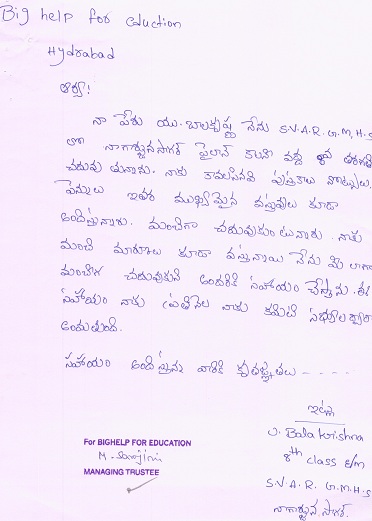 Big help for Eduction
Hydrabad
ఆర్యా!
నా పేరు యు. బాలకృష్ణ నేను S.V.A.R.G.M.H.S
లో నాగార్జునసాగర్ పైలాన్ కాలని వద్ద 8వ తరగతి
చదువు తున్నాను. నాకు కావలసినవి పుస్తకాలు నోట్సులు,
పెన్నులు ఇతర ముఖ్యమైన వస్తువులు కూడా
అందిస్తున్నారు. మంచిగా చదువుకుంటున్నాను. నాకు
మంచి మార్కులు కూడా వస్తున్నాయి నేను మీ లాగా
మంచిగ చదువుకుని అందరికి సహాయం చేస్తాను. ఈ
సహాయం నాకు ప్రతినెల నాకు కమిటి సభ్యుల ద్వారా
అందుతుంది.
సహాయం అందిస్తున్న వారికి కృతజ్ఞతలు - - - - -
ఇట్లు
U. Bala Krishna
8th class E/m
S.V.A.R. G.M.H.S
నాగార్జున సాగర్.
For BIGHELP FOR EDUCATION
M. Sarojini
MANAGING TRUSTEE